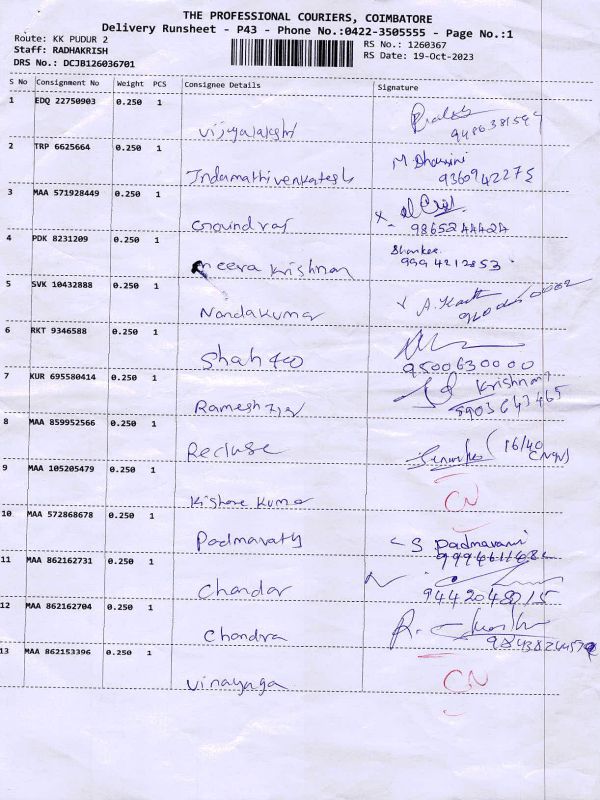 THE PROFESSIONAL COURIERS, COIMBATORE
Delivery Runsheet - P43 - Phone No.:0422-3505555 - Page No.:1
Route: KK PUDUR 2
RS No.: 1260367
Staff: RADHAKRISH
RS Date: 19-Oct-2023
DRS No.: DCJB126036701
S No Consignment No Weight PCS Consignee Details Signature
1 EDQ 22750903 0.250 1
Vijayalakshi
2 TRP 6625664 0.250 1 M Dharsini
Indamathivenkatesh 9360942275
3 MAA 571928449 0.250 1
Govindraj 9865244424
4 PDK 8231209 0.250 1 Shankee
meera Krishnan 9994212853
5 SVK 10432888 0.250 1
Nandakumar
6 RKT 9346588 0.250 1
Shah 9500630000
7 KUR 695580414 0.250 1 Krishnan
Ramesh 5903643465
8 MAA 859952566 0.250 1 (16/40
Recluse
9 MAA 105205479 0.250 1
Kishore Kumar CN
10 MAA 572868678 0.250 1
Padmavathy S Padmavani
11 MAA 862162731 0.250 1
Chandar 9442048015
12 MAA 862162704 0.250 1
Chandra
13 MAA 862153396 0.250 1
Vinayaga CN